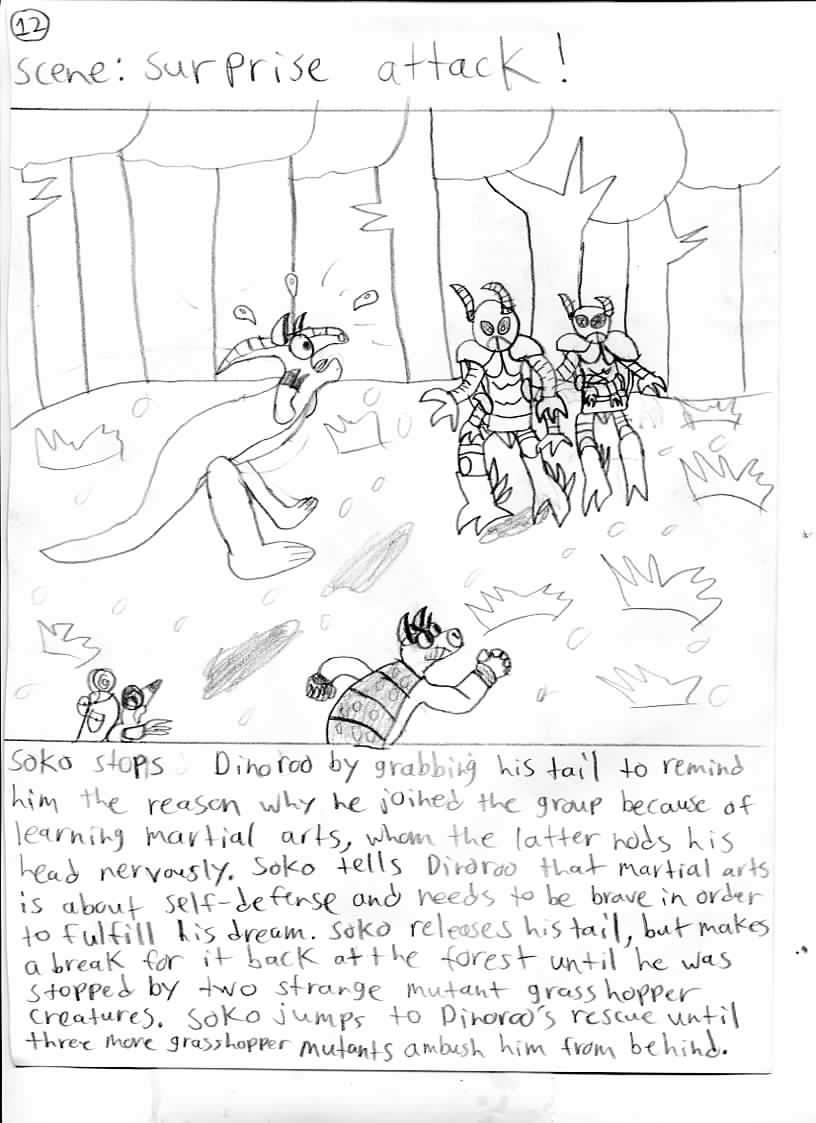 12
scene: surprise attack!
Soko stops Dinoroo by grabbing his tail to remind
him the reason why he joined the group because of
learning martial arts, whom the latter nods his
head nervously. Soko tells Dinoroo that martial arts
is about self-defense and needs to be brave in order
to fulfill his dream. Soko releases his tail, but makes
a break for it back at the forest until he was
stopped by two strange mutant grasshopper
creatures. Soko jumps to Dinoroo's rescue until
three more grasshopper mutants ambush him from behind.